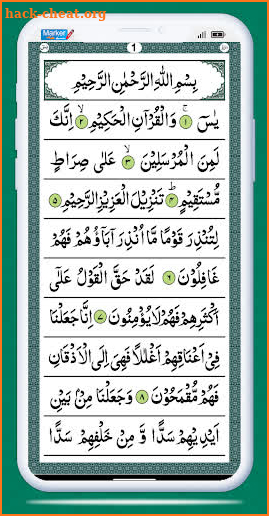 hack-cheat.org
Marker
1
بِسْمِ اللهِ الرَّحْمٰنِ الرَّحِيْمِ
يٰسٓ ۝١ وَالْقُرْآنِ الْحَكِيْمِ ۝٢ اِنَّكَ
لَمِنَ الْمُرْسَلِيْنَ ۝٣ عَلٰى صِرَاطٍ
مُّسْتَقِيْمٍ ۝٤ تَنْزِيْلَ الْعَزِيْزِ الرَّحِيْمِ ۝٥
لِتُنْذِرَ قَوْمًا مَّا اُنْذِرَ اٰبَآؤُهُمْ فَهُمْ
غَافِلُوْنَ ۝٦ لَقَدْ حَقَّ الْقَوْلُ عَلٰٓى
اَكْثَرِهِمْ فَهُمْ لَا يُؤْمِنُوْنَ ۝٧ اِنَّا جَعَلْنَا
فِيْٓ اَعْنَاقِهِمْ اَغْلٰلًا فَهِيَ اِلَى الْاَذْقَانِ
فَهُمْ مُّقْمَحُوْنَ ۝٨ وَجَعَلْنَا مِنْۢ بَيْنِ
اَيْدِيْهِمْ سَدًّا وَّ مِنْ خَلْفِهِمْ سَدًّا